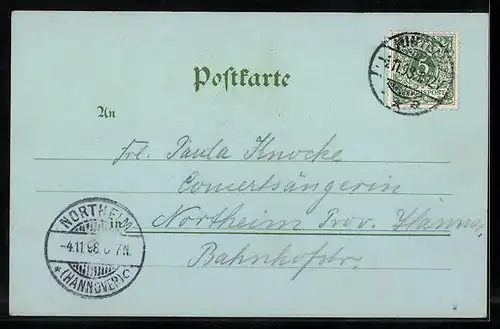 Postkarte
5
An
Frl. Paula Knocke
Concertsängerin
Northeim Prov. Hann.
Bahnhofstr.
in
NORTHEIM
-4.11.98. 6-7N.
* (HANNOVER) C